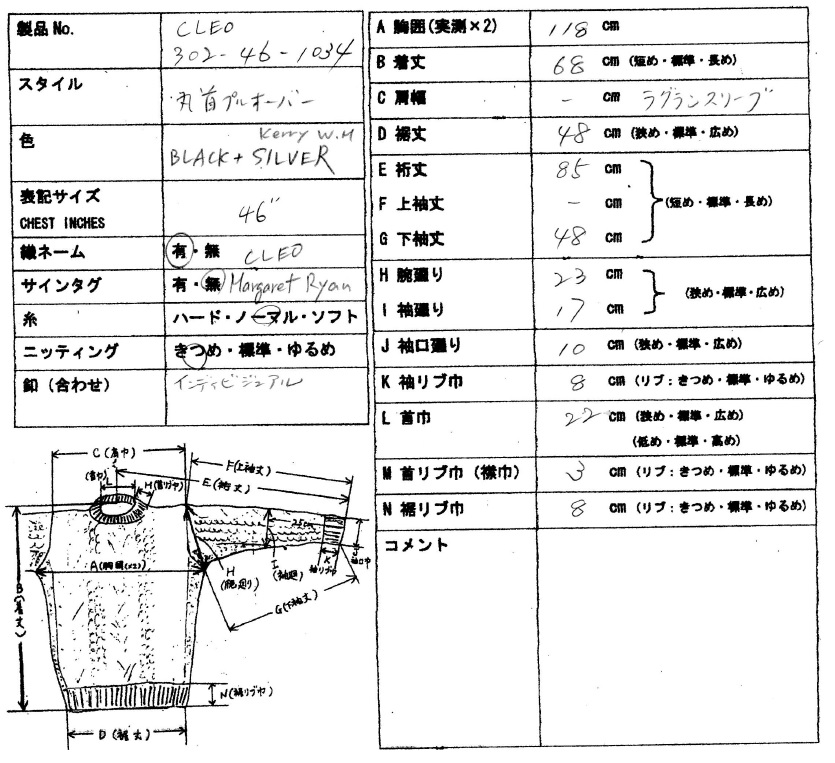 製品 No.
CLEO
302-46-1034
スタイル
丸首プルオーバー
色
Kerry W.H
BLACK + SILVER
表記サイズ
CHEST INCHES
46"
織ネーム
有・無 CLEO
サインタグ
有・無 Margaret Ryan
糸
ハード・ノーマル・ソフト
ニッティング
きつめ・標準・ゆるめ
釦（合わせ）
インディビジュアル
A 胸囲(実測×2) 118 cm
B 着丈 68 cm (短め・標準・長め)
C 肩幅 - cm ラグランスリーブ
D 裾丈 48 cm (狭め・標準・広め)
E 裄丈 85 cm
F 上袖丈 - cm (短め・標準・長め)
G 下袖丈 48 cm
H 腕廻り 23 cm
(狭め・標準・広め)
I 袖廻り 17 cm
J 袖口廻り 10 cm (狭め・標準・広め)
K 袖リブ巾 8 cm (リブ：きつめ・標準・ゆるめ)
L 首巾 22 cm (狭め・標準・広め)
(低め・標準・高め)
M 首リブ巾（襟巾） 3 cm (リブ：きつめ・標準・ゆるめ)
N 裾リブ巾 8 cm (リブ：きつめ・標準・ゆるめ)
コメント
C (肩巾)
F(上袖丈)
E(裄丈)
(首巾)
L
M(首リブ巾)
25cm
A(胸囲(×2))
B(着丈)
H
(腕廻り)
I
(袖廻)
K
袖リブ巾
J
袖口巾
G(下袖丈)
N(裾リブ巾)
D (裾丈)